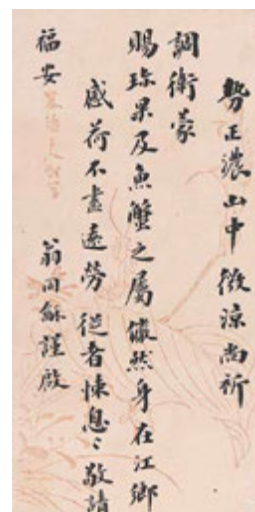 勢正濃山中微涼尚祈
調衛蒙
賜珍果及魚蟹之屬儼然身在江鄉
感荷不盡遠勞從者悚息〻敬請
福安
翁同龢謹啟